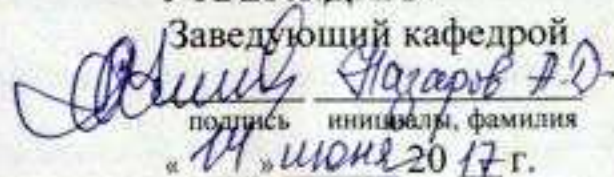 Заведующий кафедрой
Назаров А.Д.
подпись инициалы, фамилия
« 14 » июня 2017 г.